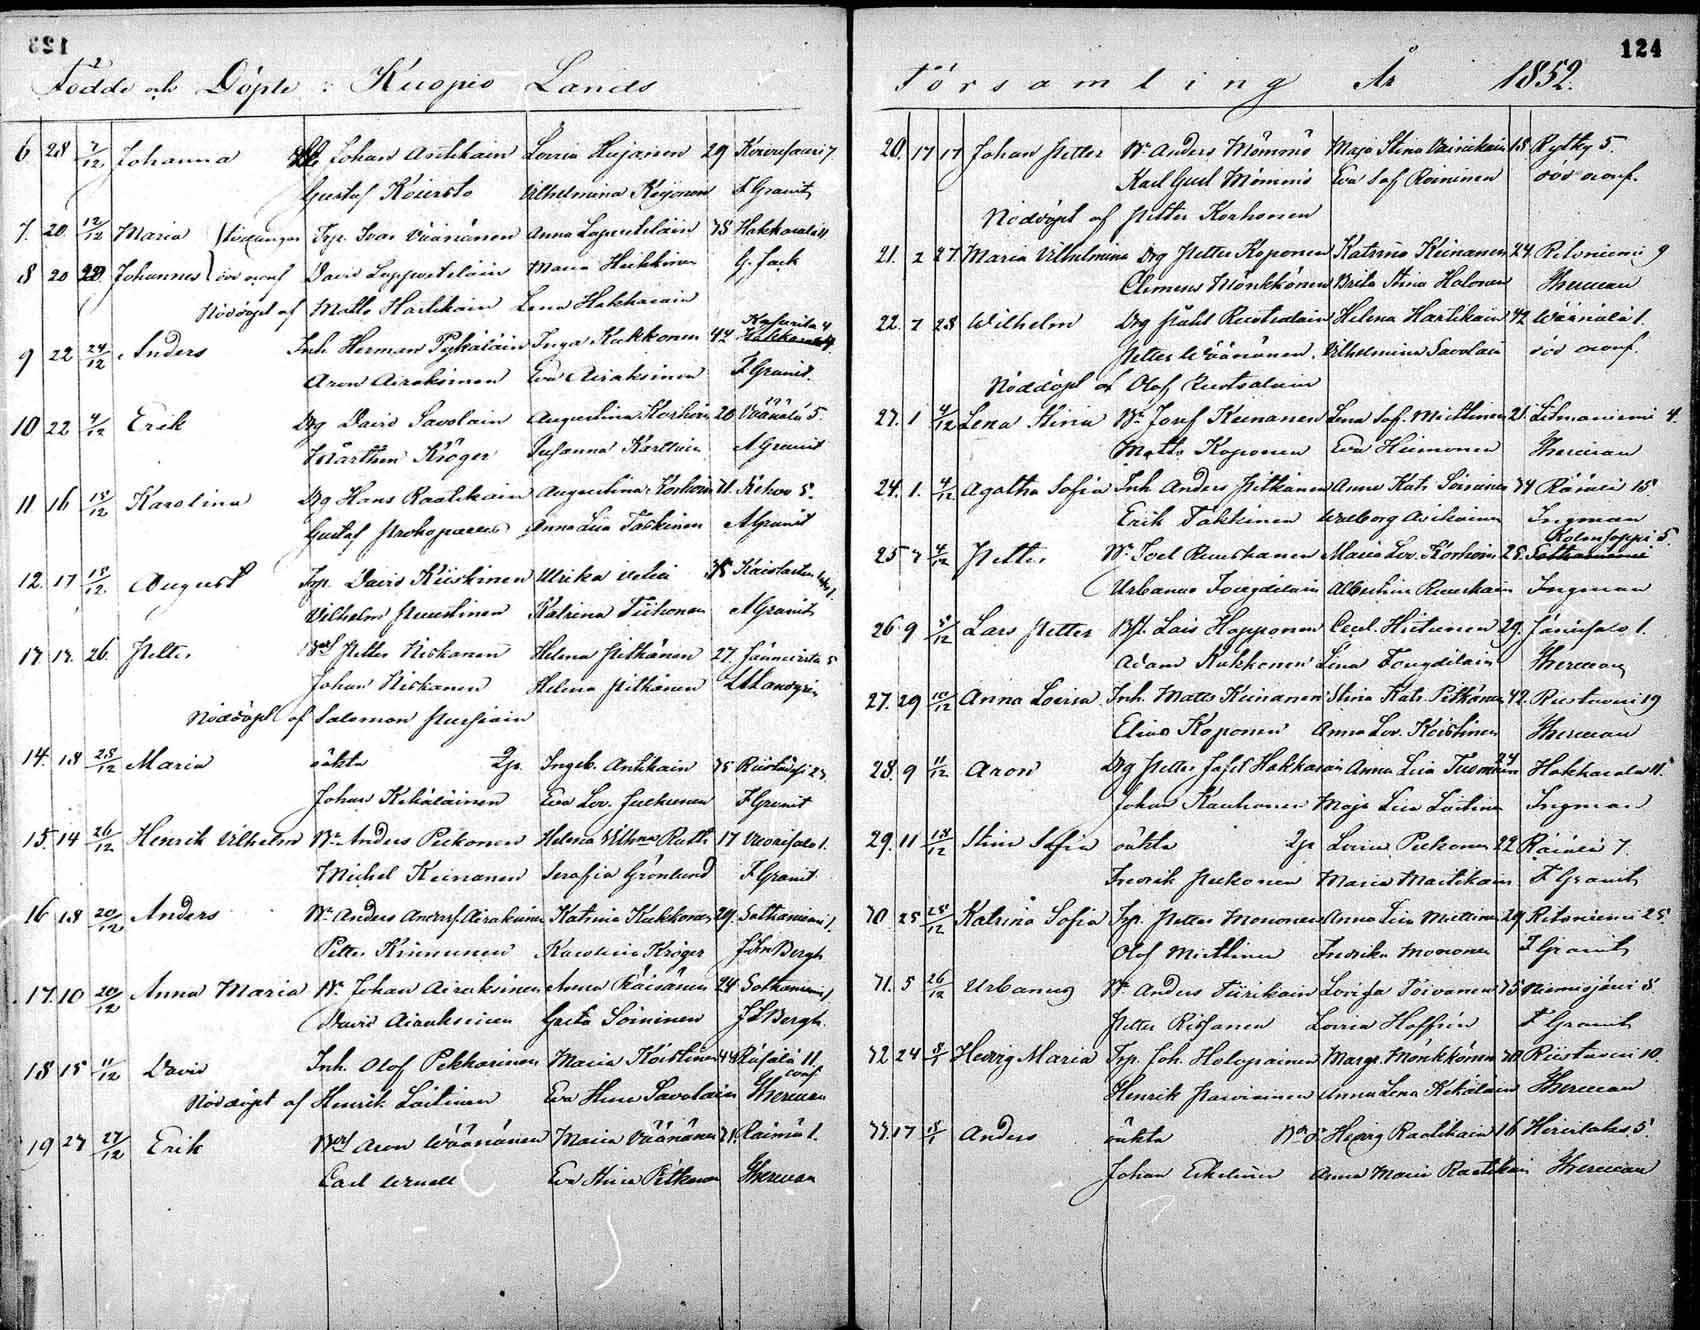 123
Födde och Döpte i Kuopio Lands
6 28 7/12 Johanna Johan Antikain Lovisa Hujanen 29 Kourusaari 7
Gustaf Vilhelmina Keijonen F Granit
7. 20 12/12 Maria Tvillingar Trp. Ivar Väänänen Anna Lappeteläin 38 Hakkarala 11
8 20 20 Johannes David Lappeteläin Maria Heikkinen G. Jack
Nöddöpt af Matts Hartikain Lena Hakkarain
Kasurila 4
9 22 24/12 Anders Inh. Herman Pyykäläin Inga Kukkonen 42
Aron Airaksinen Eva Airaksinen F Granit.
10 22 4/12 Erik Drg David Savolain Augustina Korhoin 20 Väänälä 5.
Mårthen Kröger Susanna Karttuin A Granit
11 16 18/12 Karolina Drg Hans Raatikain Augustina Korhoin 31. Kehvo 5.
Gustaf Prokopaeus Anna Liisa Taskinen A Granit
12. 17 18/12 August Trp. David Kiiskinen Ulrika
Vilhelm Puustinen Katrina Tiihonen A Granit
13 13. 26. Petter Petter Niskanen Helena Pitkänen 27.
Johan Niskanen Helena Pitkänen
Nöddöpt af Salomon Pursiain
14. 18 28/12 Maria oäkta Pg. Ingeb. Antikain 35
Johan Kekäläinen Eva Lov. Julkunen F Granit
15. 14 26/12 Henrik Vilhelm Bn Anders Piekonen Helena Vilhna Rutt. 17 Vuorisalo 1.
Michel Keinanen Serafia Grönlund F Granit
16 18 20/12 Anders Bn Anders Andersf. Airaksinen Katrina Kukkonen 29. Sotkaniemi 1.
Petter Kinnunen Karolina Kröger Bergh
17. 10 20/12 Anna Maria Bn Johan Airaksinen Anna Räisänen 24 Sotkaniemi 1
David Airaksinen Greta Soininen Bergh.
18 15 11/12 David Inh. Olof Pekkarinen Maria Koistinen 44 Räsälä 11
conf
Nöddöpt af Henrik Laitinen Eva Stina Savolain Therman
19 27 27/12 Erik Aron Wäänänen Maria Väänänen 31. Raimio 1.
Carl Eva Stina Pitkanen Therman
124
Församling År 1852.
20. 17 17 Johan Petter Bn Anders Mömmö Maja Stina Väinikain 18 Rytky 5.
Karl Gust Mömmö Eva Sof Roininen död oconf.
Nöddöpt af Petter Korhonen
21. 2 27 Maria Vilhelmina Drg Petter Koponen Katrina Keinanen 24. Ritoniemi 9
Clemens Mönkkönen Brita Stina Halonen Therman
22. 7 28 Wilhelm Drg Påhl Ruotsalain Helena Hartikain 42 Väänälä 1.
Petter Wäänänen Vilhelmina Savolain död oconf.
Nöddöpt af Olof Ruotsalain
23. 1 4/12 Lena Stina Bn Josef Keinanen Lena Sof. Miettinen 21. Litmaniemi 4.
Matts Koponen Eva Heimonen Therman
24. 1. 4/12 Agatha Sofia Inh Anders Pitkänen Anna Kat. Soininen 34 Räsälä 15
Erik Takkinen Walborg Asikainen Ingman
Kolmisoppi 5.
25 7 4/12 Petter Bn Joel Ruuskanen Maria Lov. Korhoin 25. Sotkaniemi
Urbanus Tougdilain Albertina Ruuskain Ingman
26. 9 5/12 Lars Petter Lars Hopponen Cecil. Hiitunen 29. Jänissalo 1.
Adam Kukkonen Lena Tougdilain Therman
27. 29 10/12 Anna Lovisa Inh. Matts Keinanen Stina Kat. Pitkänen 42. Riistavesi 19
Elias Koponen Anna Lov. Koistinen Therman
28. 9 11/12 Aron Drg Petter Josef Hakkarain Anna Lisa Tuomain 24 Hakkarala 11.
Johan Kauhanen Maja Lisa Laitinen Ingman
29. 11 18/12 Stina Sofia oäkta Pg Lovisa Piekonen 22 Räsälä 7.
Fredrik Piekonen Maria Martikain F Granit
30. 25 25/12 Katrina Sofia Trp. Petter Mononen Anna Lisa Miettinen 29 Ritoniemi 25.
Olof Miettinen Fredrika Mononen F Granit
31. 5 26/12 Urbanus Bn Anders Tiirikain Lovisa Toivanen 35 Niemisjärvi 8.
Petter Rissanen Lovisa Hoffrén F Granit
32 24 8/1 Hedvig Maria Trp. Joh. Holopainen Margr. Mönkkönen 30. Riistavesi 10.
Henrik Parviainen Anna Lena Kekäläin Therman
33. 17 8/1 Anders oäkta Hedvig Raatikain 16 Hirvilahti 5.
Johan Eskelinen Anna Maria Raatikain Therman